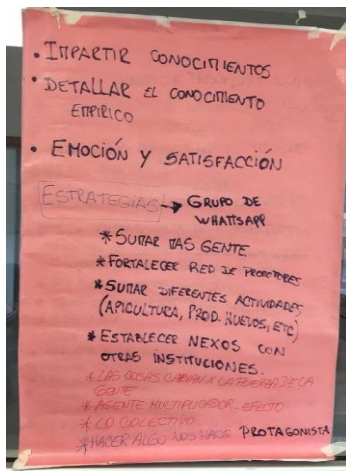 • IMPARTIR CONOCIMIENTOS
• DETALLAR EL CONOCIMIENTO
EMPIRICO
• EMOCIÓN Y SATISFACCIÓN
ESTRATEGIAS → GRUPO DE
WHATTSAPP
* SUMAR MAS GENTE
* FORTALECER RED DE PROMOTORES
* SUMAR DIFERENTES ACTIVIDADES
(APICULTURA, PROD. HUEVOS, ETC)
* ESTABLECER NEXOS CON
OTRAS INSTITUCIONES.
* LAS COSAS CAMBIAN X LA FUERZA DE LA
GENTE
* AGENTE MULTIPLICADOR - EFECTO
* LO COLECTIVO
* HACER ALGO NOS HACE PROTAGONISTA